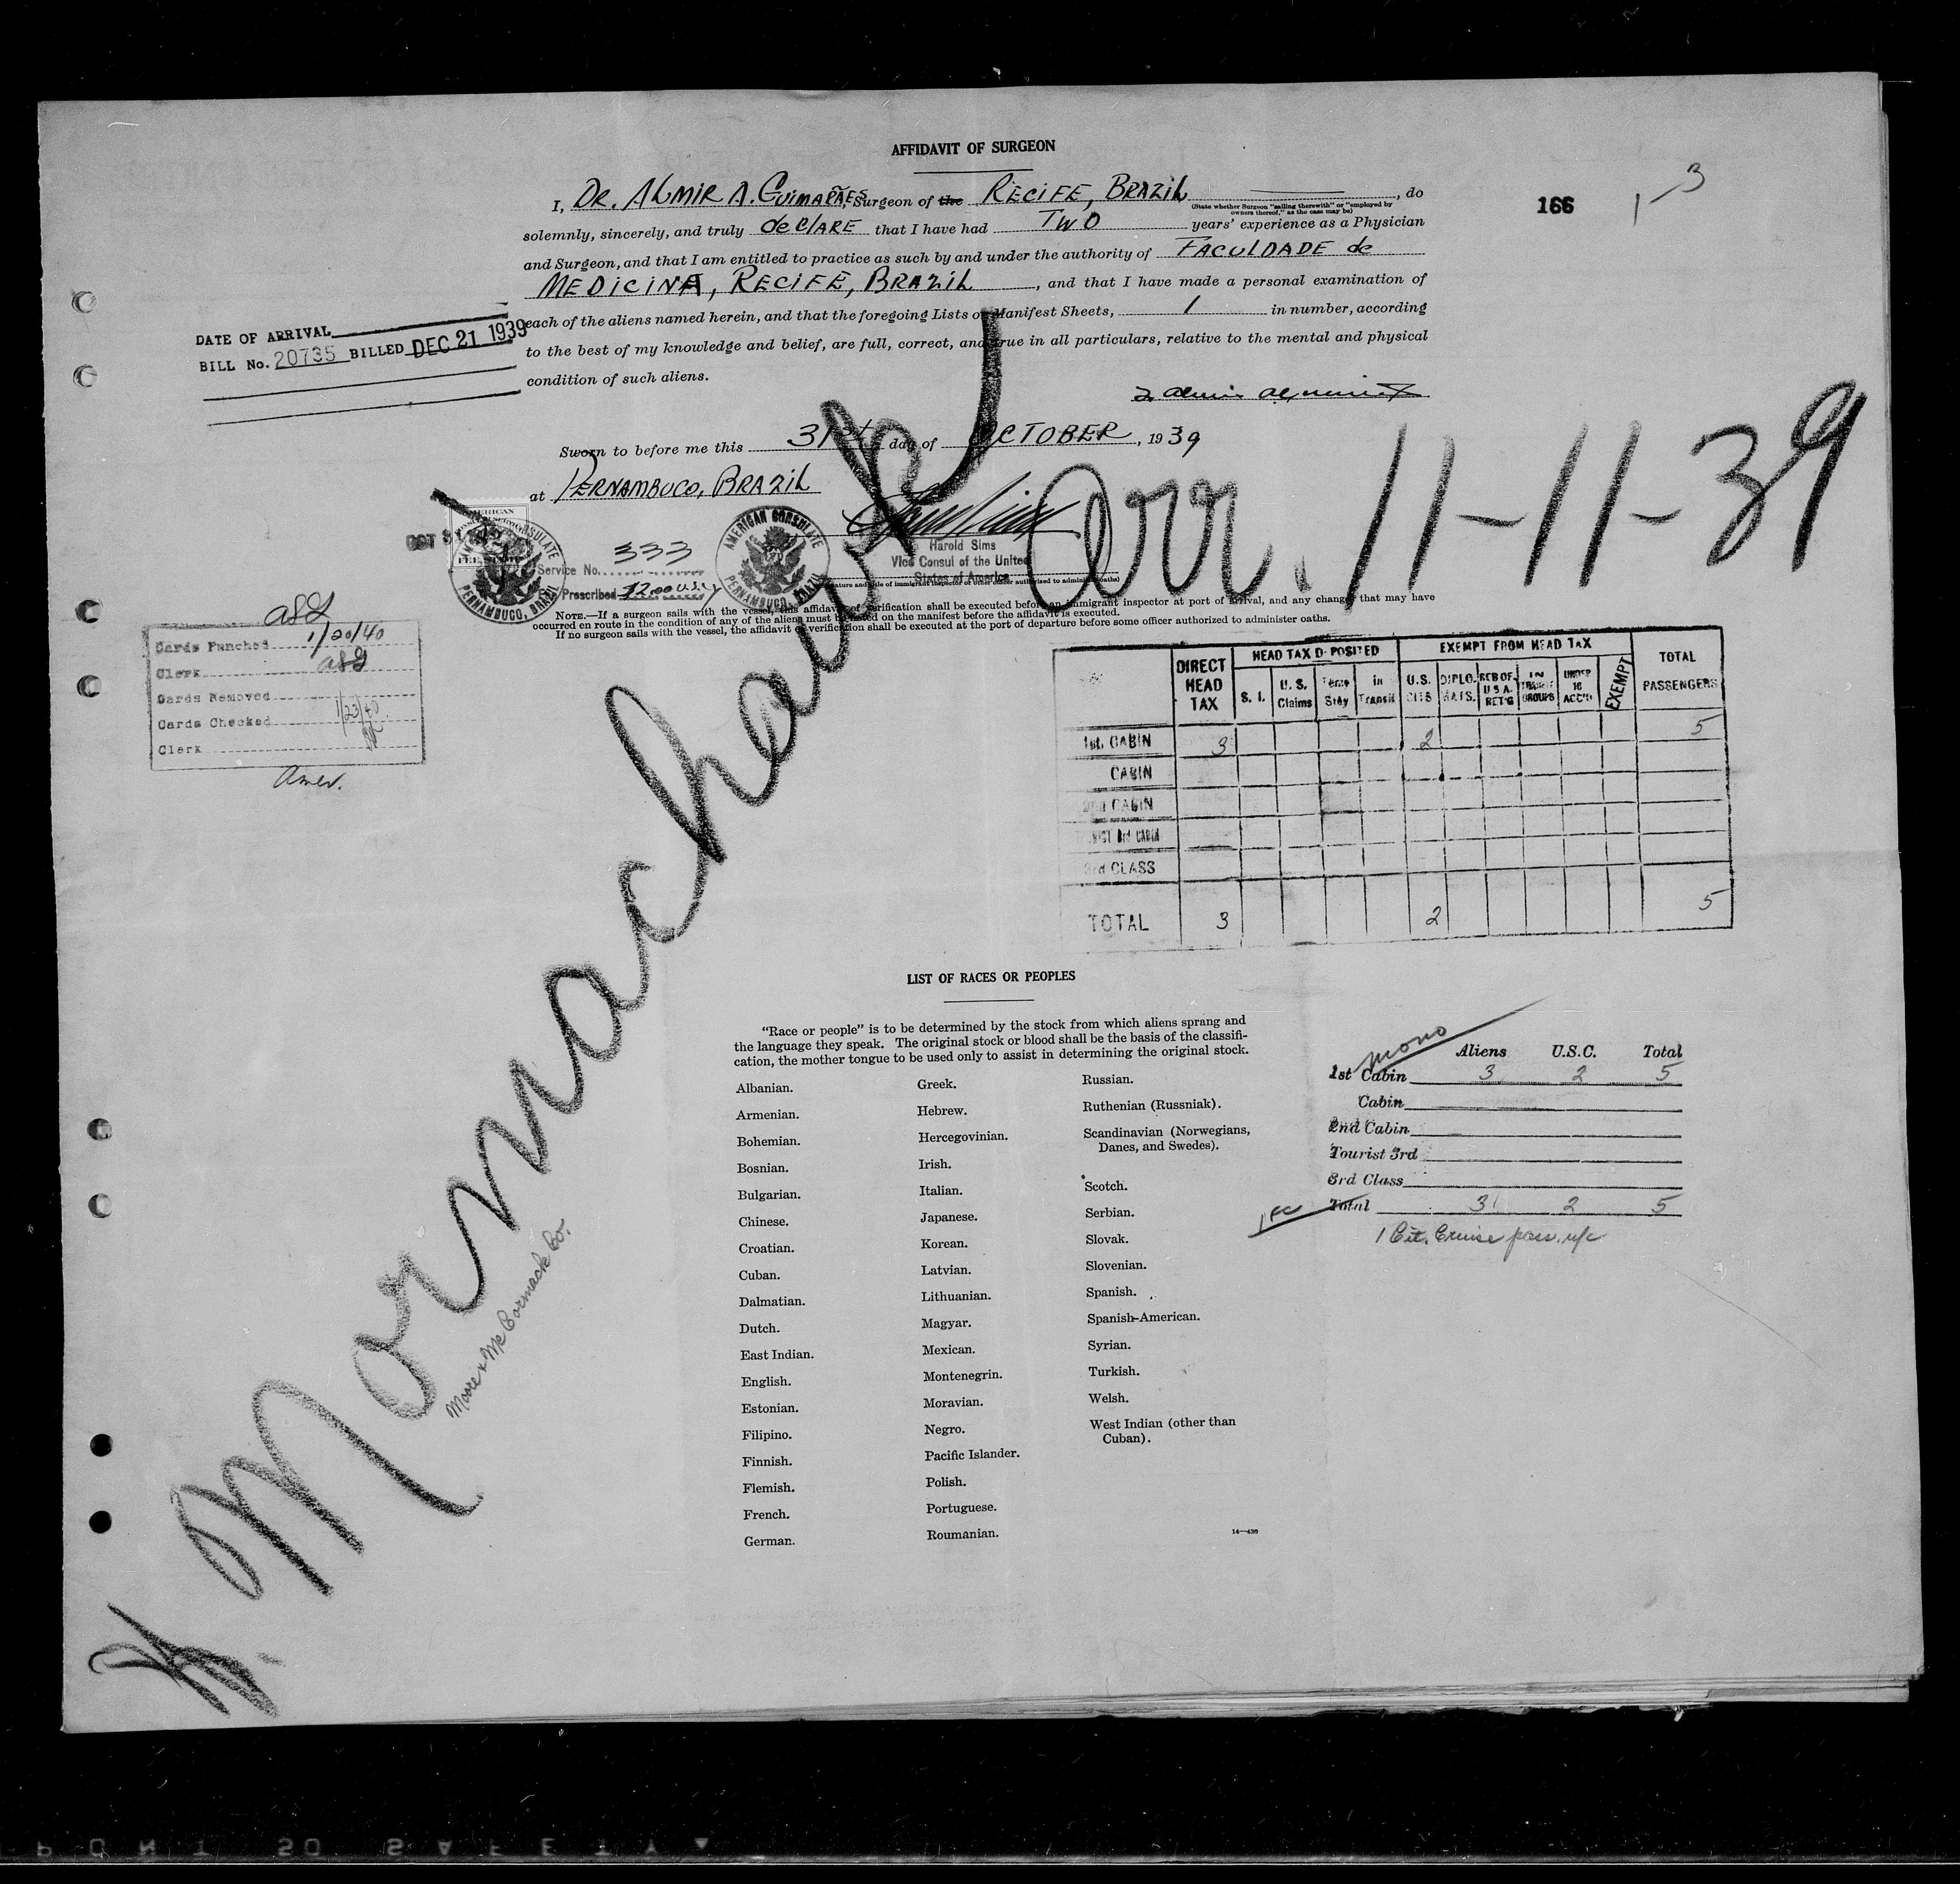 AFFIDAVIT OF SURGEON
166
1-3
I, DR. ALMIR A. GUIMARÃES, Surgeon of the RECIFE, BRAZIL, do
(State whether Surgeon "sailing therewith" or "employed by
owners thereof," as the case may be)
solemnly, sincerely, and truly declare that I have had TWO years' experience as a Physician
and Surgeon, and that I am entitled to practice as such by and under the authority of FACULDADE de
MEDICINA, RECIFE, BRAZIL, and that I have made a personal examination of
each of the aliens named herein, and that the foregoing Lists or Manifest Sheets, 1 in number, according
to the best of my knowledge and belief, are full, correct, and true in all particulars, relative to the mental and physical
condition of such aliens.
DATE OF ARRIVAL
BILL No. 20735 BILLED DEC 21 1939
Sworn to before me this 31st day of OCTOBER, 1939
at PERNAMBUCO, BRAZIL
Arr. 11-11-39
AMERICAN CONSULATE
PERNAMBUCO, BRAZIL
Service No. 333
Prescribed
AMERICAN CONSULATE
PERNAMBUCO, BRAZIL
Harold Sims
Vice Consul of the United
States of America
NOTE.—If a surgeon sails with the vessel, this affidavit of verification shall be executed before an immigrant inspector at port of arrival, and any changes that may have
occurred en route in the condition of any of the aliens must be noted on the manifest before the affidavit is executed.
If no surgeon sails with the vessel, the affidavit of verification shall be executed at the port of departure before some officer authorized to administer oaths.
Cards Punched 1/20/40
Clerk
Cards Removed
Cards Checked 1/23/40
Clerk
Amer.
DIRECT HEAD TAX
HEAD TAX DEPOSITED
EXEMPT FROM HEAD TAX
TOTAL PASSENGERS
S. I.
U. S. Claims
Temp Stay
in Transit
U.S. CITS
DIPLOMATS.
RES OF U S A. RET'G
IN TRANSIT GROUPS
UNDER 16 ACC'D
EXEMPT
1st. CABIN 3 2 5
CABIN
2nd CABIN
TOURIST 3rd CABIN
3rd CLASS
TOTAL 3 2 5
Mormachawk
Moore & McCormack Co.
LIST OF RACES OR PEOPLES
"Race or people" is to be determined by the stock from which aliens sprang and
the language they speak. The original stock or blood shall be the basis of the classifi-
cation, the mother tongue to be used only to assist in determining the original stock.
Albanian.
Armenian.
Bohemian.
Bosnian.
Bulgarian.
Chinese.
Croatian.
Cuban.
Dalmatian.
Dutch.
East Indian.
English.
Estonian.
Filipino.
Finnish.
Flemish.
French.
German.
Greek.
Hebrew.
Hercegovinian.
Irish.
Italian.
Japanese.
Korean.
Latvian.
Lithuanian.
Magyar.
Mexican.
Montenegrin.
Moravian.
Negro.
Pacific Islander.
Polish.
Portuguese.
Roumanian.
Russian.
Ruthenian (Russniak).
Scandinavian (Norwegians,
Danes, and Swedes).
Scotch.
Serbian.
Slovak.
Slovenian.
Spanish.
Spanish-American.
Syrian.
Turkish.
Welsh.
West Indian (other than
Cuban).
14—430
mono
Aliens U.S.C. Total
1st Cabin 3 2 5
Cabin
2nd Cabin
Tourist 3rd
3rd Class
Total 3 2 5
1 Cit. Cruise pass. n/c